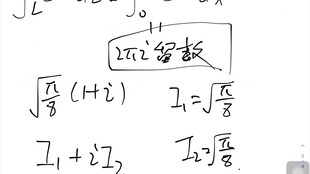 2πi留数
√(π/8) (1+i)
I₁=√(π/8)
I₁+iI₂
I₂=√(π/8)